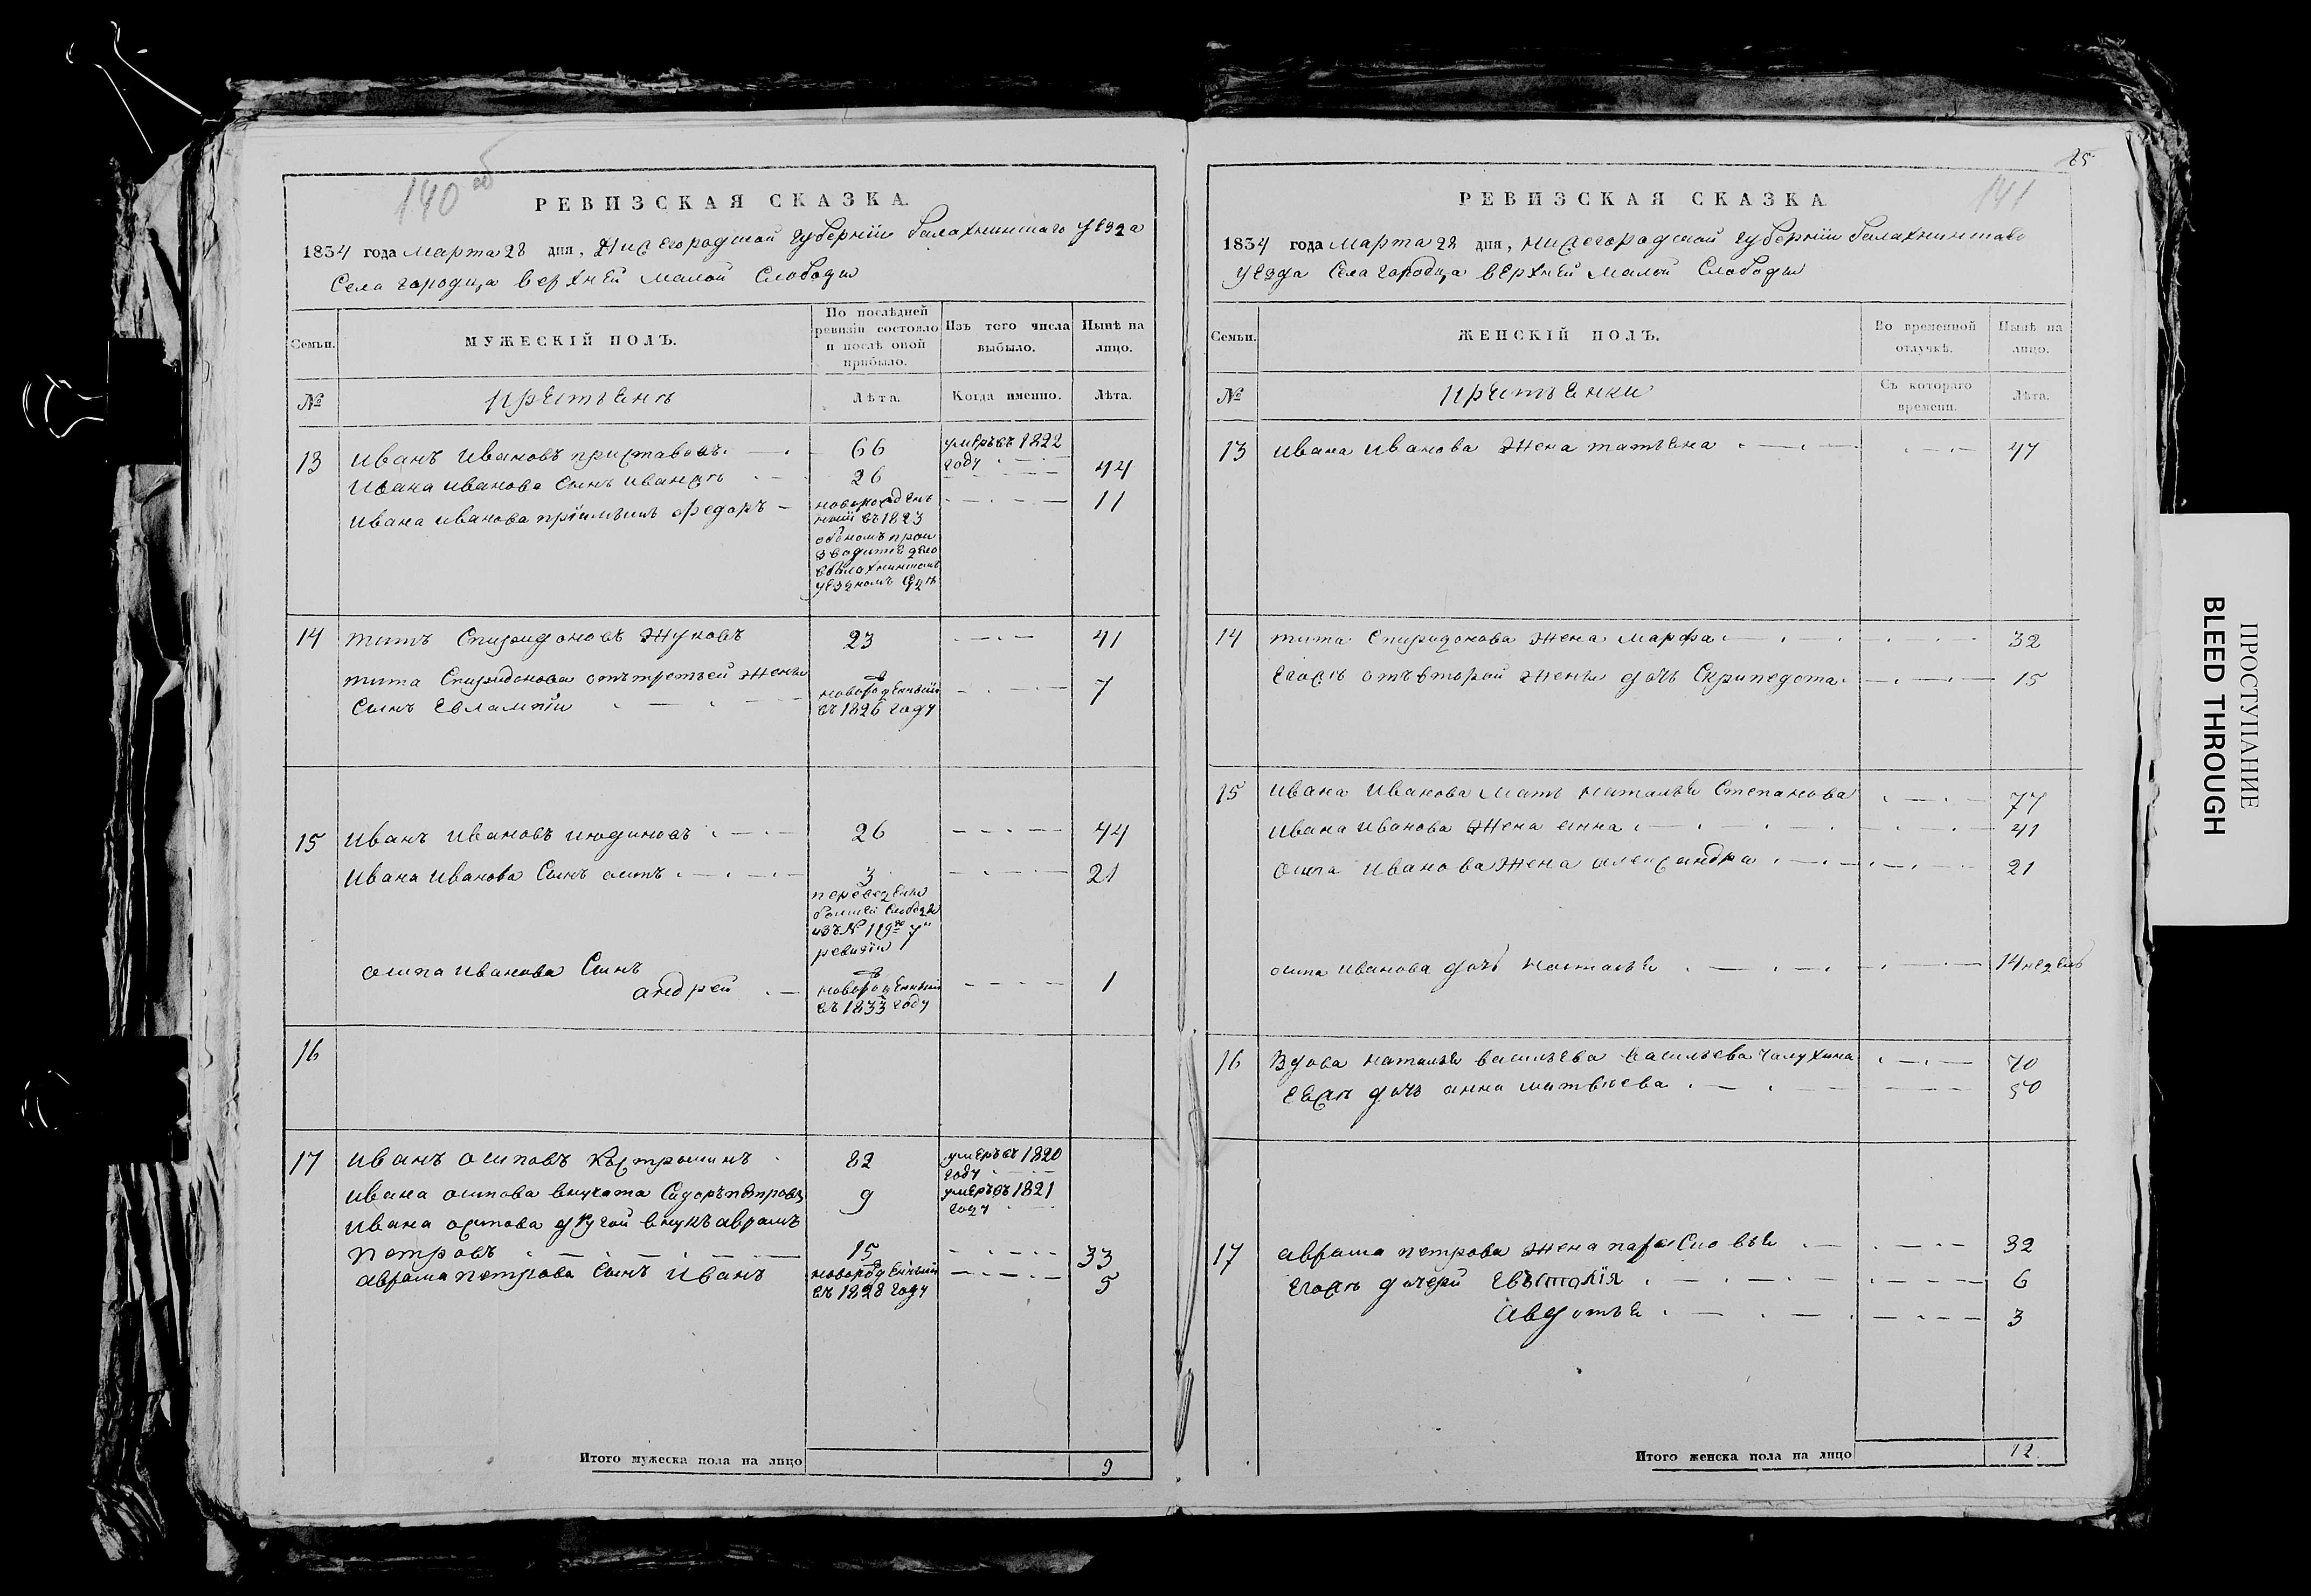 140 об
РЕВИЗСКАЯ СКАЗКА.
1834 года марта 28 дня, Нижегородской губернии Балахнинскаго уезда
Села городца верхней малой Слободы
Семьи.
МУЖЕСКІЙ ПОЛЪ.
По послѣдней ревизіи состояло и послѣ оной прибыло.
Изъ того числа выбыло.
Нынѣ на лицо.
№
крестьянъ
Лѣта.
Когда именно.
Лѣта.
13 иванъ ивановъ приставовъ. 66 умеръ въ 1822 году
ивана иванова сынъ иванъ 26 44
ивана иванова пріимышъ федоръ новорожденный въ 1823 11
уездномъ
14 титъ Спиридоновъ Жуковъ 23 41
тита Спиридонова отъ третьей жены
сынъ Евлампіи новорожденный въ 1826 году 7
15 иванъ ивановъ июдиновъ 26 44
ивана иванова Сынъ осипъ 3 21
переведены
большей слободы
изъ № 119го 7й
ревизіи
осипа иванова Сынъ
андрей новорожденный въ 1833 году 1
16
17 иванъ осиповъ Костроминъ 82 умеръ въ 1820 году
ивана осипова внучата Сидоръ петровъ 9 умеръ въ 1821 году
ивана осипова другой внукъ аврамъ
петровъ 15 33
аврама петрова сынъ иванъ новорожденный въ 1828 году 5
Итого мужеска пола на лицо 9
85
141
РЕВИЗСКАЯ СКАЗКА
1834 года марта 28 дня, нижегородской губерніи балахнинскаго
уезда Села городца верхней малой Слободы
Семьи.
ЖЕНСКІЙ ПОЛЪ.
Во временной отлучкѣ.
Нынѣ на лицо.
№
крестьянки
Съ котораго времени.
Лѣта.
13 ивана иванова жена татьяна 47
14 тита Спиридонова жена марфа 32
егожъ отъ второй жены дочь 15
15 ивана иванова мать наталья Степанова 77
ивана иванова жена анна 41
осипа иванова жена александра 21
осипа иванова дочь настасья 14 недель
16 Вдова наталья васильева 70
еежъ дочь анна матвѣева 50
17 аврама петрова жена парасковья 32
егожъ дочери Евъстолія 6
Авдотья 3
Итого женска пола на лицо 12
ПРОСТУПАНИЕ
BLEED THROUGH